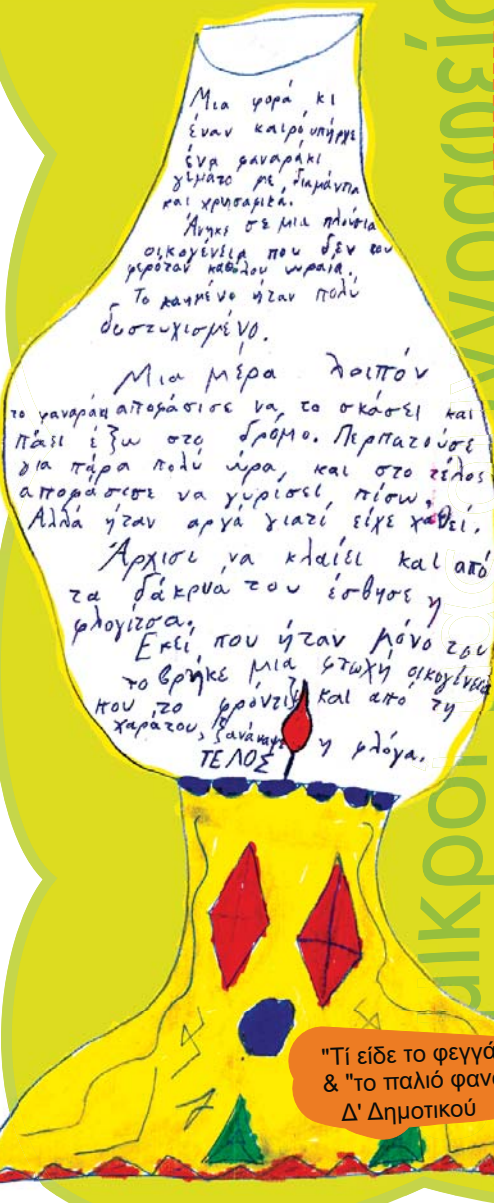 Μια φορά κι
έναν καιρό υπήρχε
ένα φαναράκι
γεμάτο με διαμάντια
και χρησαφικά.
Άνηκε σε μια πλούσια
οικογένεια που δεν του
φερόταν καθόλου ωραία.
Το καημένο ήταν πολύ
δυστυχισμένο.
Μια μέρα λοιπόν
το φαναράκι αποφάσισε να το σκάσει και
πάει έξω στο δρόμο. Περπατούσε
για πάρα πολύ ώρα, και στο τέλος
αποφάσισε να γυρίσει πίσω.
Αλλά ήταν αργά γιατί είχε χαθεί.
Άρχισε να κλαίει και από
τα δάκρυα του έσβησε η
φλογίτσα.
Εκεί που ήταν μόνο του
το βρήκε μια φτωχή οικογένεια
που το φρόντιζε και από τη
χαράτου, ξανάναψε η φλόγα.
ΤΕΛΟΣ
"Τί είδε το φεγγά
& "το παλιό φανα
Δ' Δημοτικού
μικροί